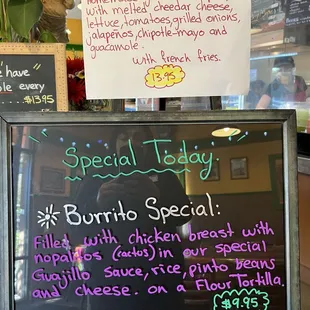 with melted cheedar cheese,
lettuce, tomatoes, grilled onions,
jalapeños, chipotle-mayo and
guacamole.
with french fries.
13.95
have"
ole every
$13.95
Special Today.
Burrito Special:
Filled with chicken breast with
nopalitos (cactus) in our special
Guajillo sauce, rice, pinto beans
and cheese. on a Flour Tortilla.
$9.95